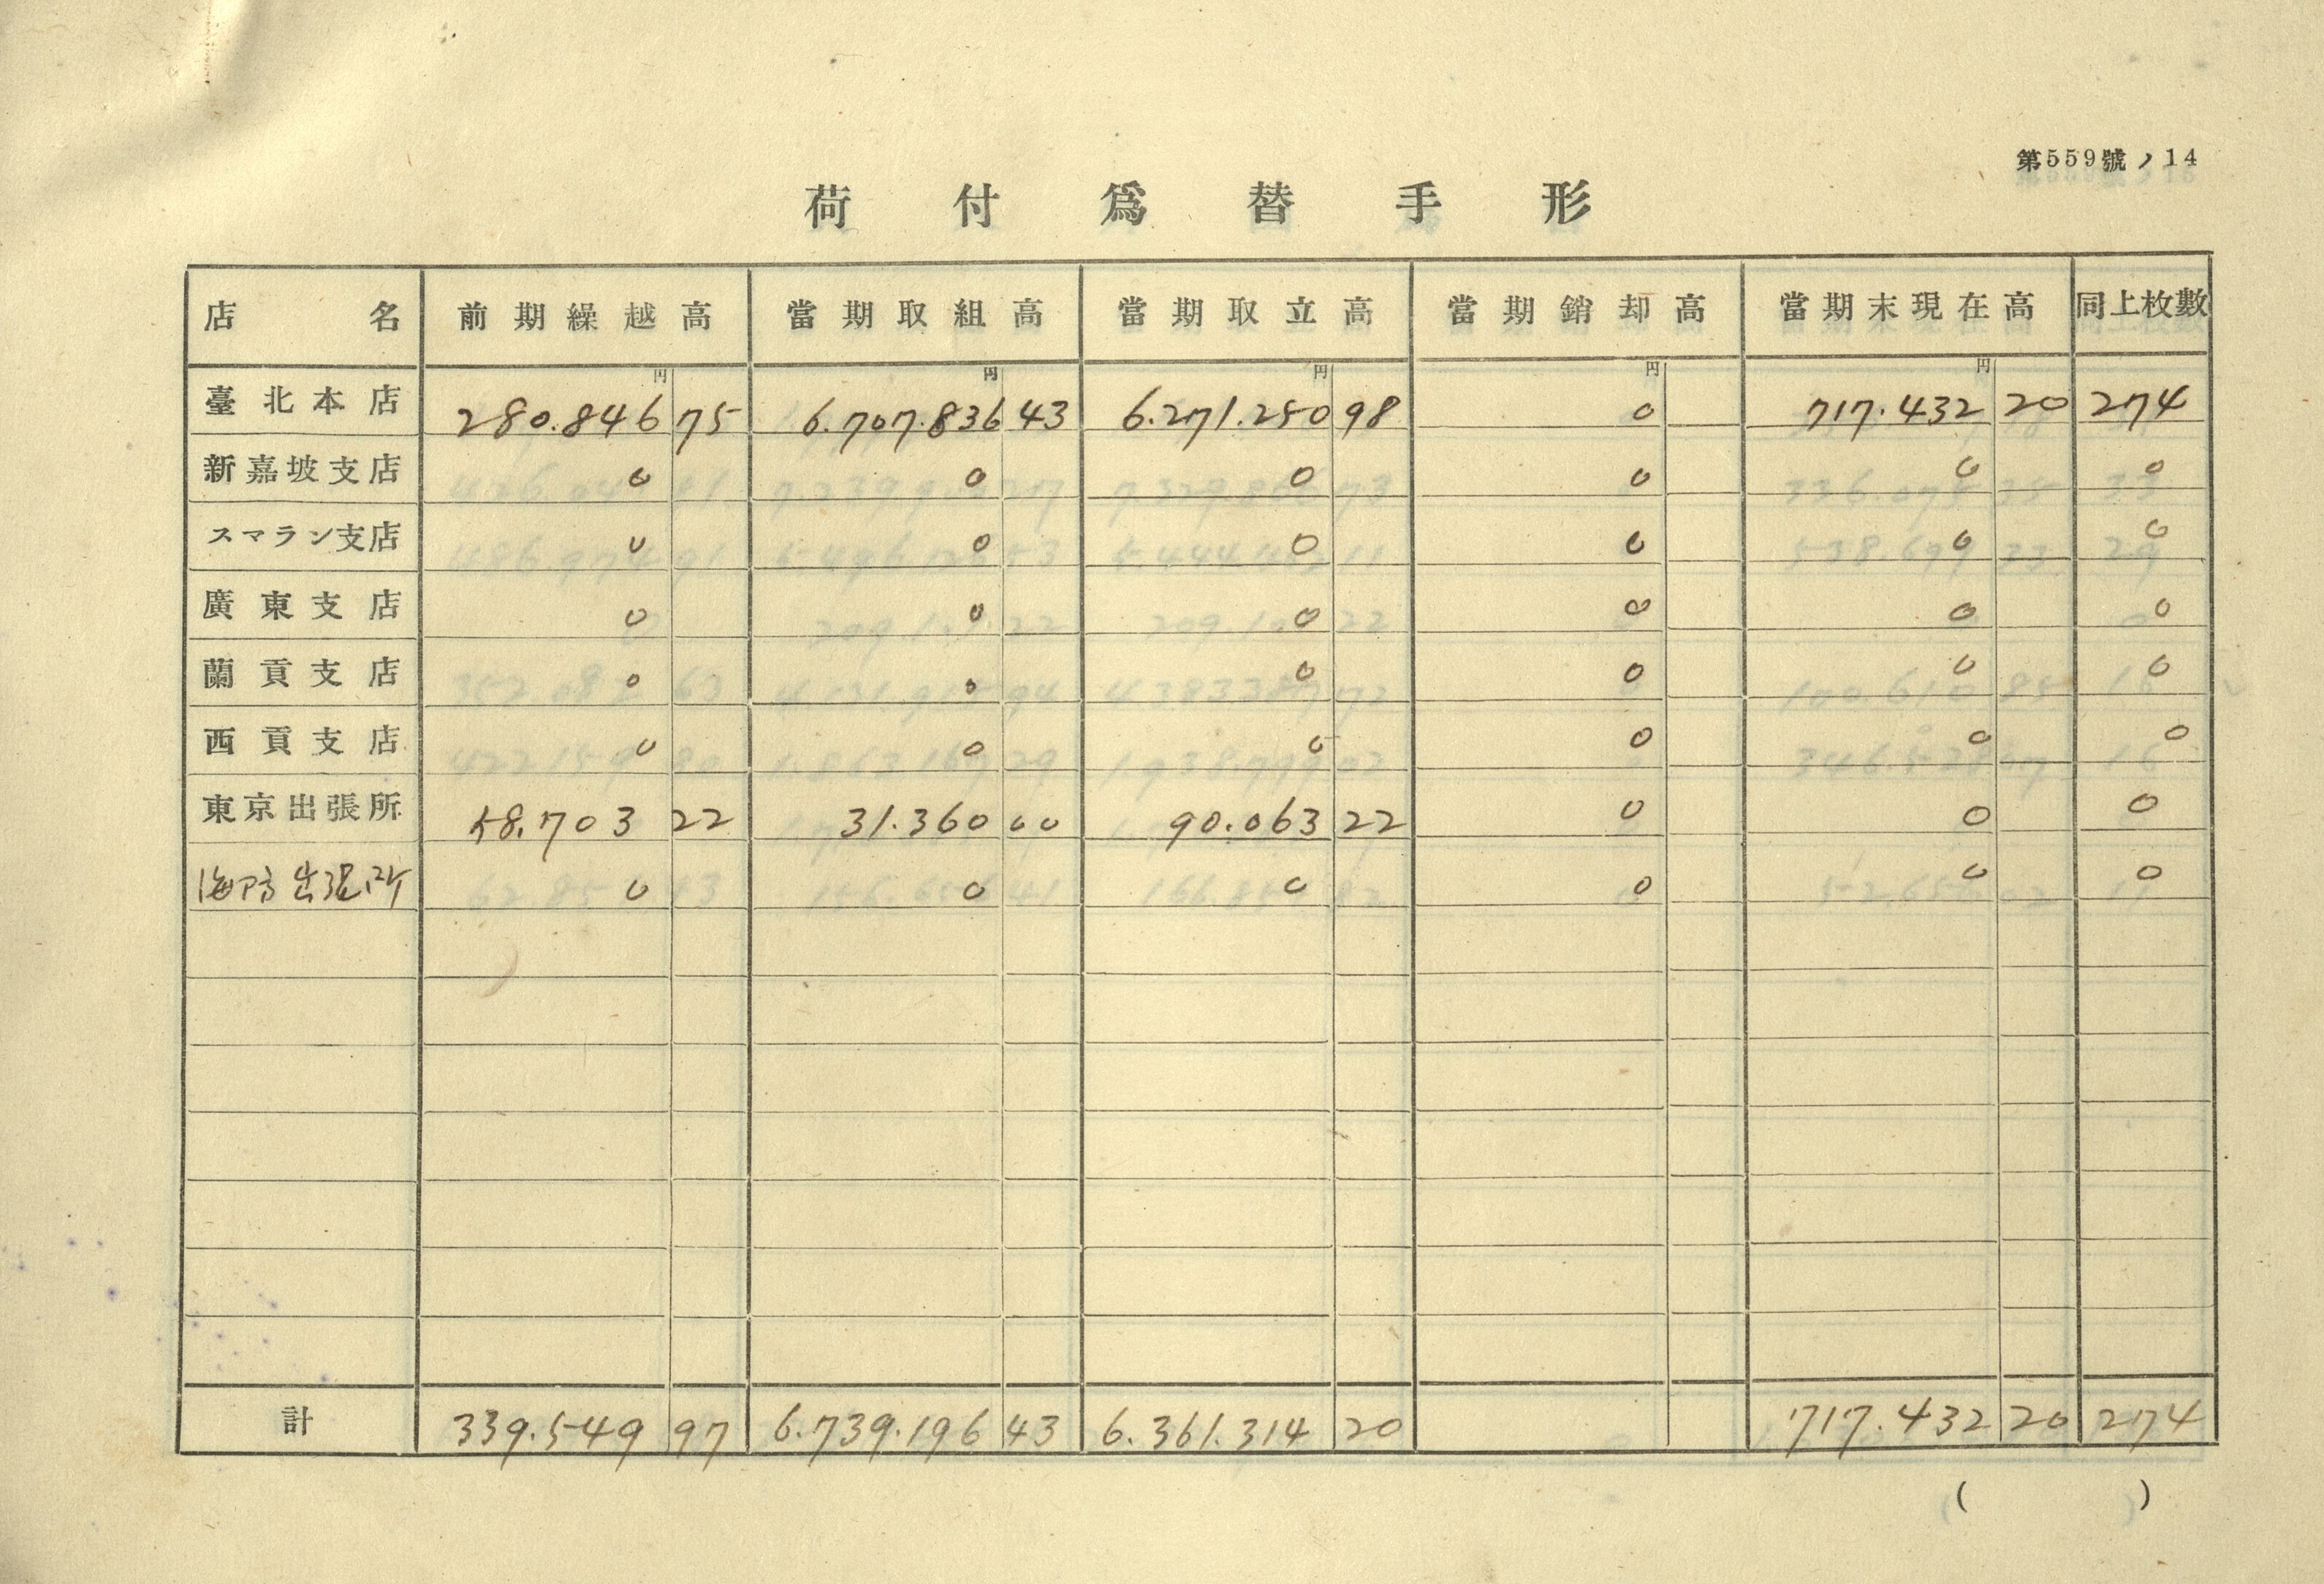 第559號ノ14
荷付爲替手形
店名 前期繰越高 當期取組高 當期取立高 當期銷却高 當期末現在高 同上枚數
円 円 円 円 円
臺北本店 280.846 75 6.707.836 43 6.271.250 98 0 717.432 20 274
新嘉坡支店 0 0 0 0 0 0
スマラン支店 0 0 0 0 0 0
廣東支店 0 0 0 0 0 0
蘭貢支店 0 0 0 0 0 0
西貢支店 0 0 0 0 0 0
東京出張所 58.703 22 31.360 00 90.063 22 0 0 0
海防出張所 0 0 0 0 0 0
計 339.549 97 6.739.196 43 6.361.314 20 717.432 20 274
( )